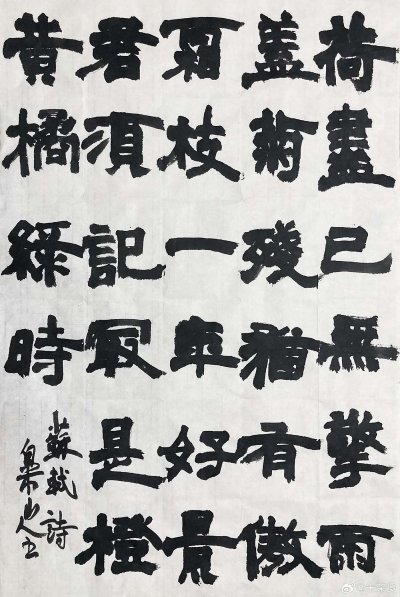 荷盡已無擎雨
盖菊殘猶有傲
霜枝一年好景
君須記冣是橙
黄橘綠時
蘇軾詩
山人书